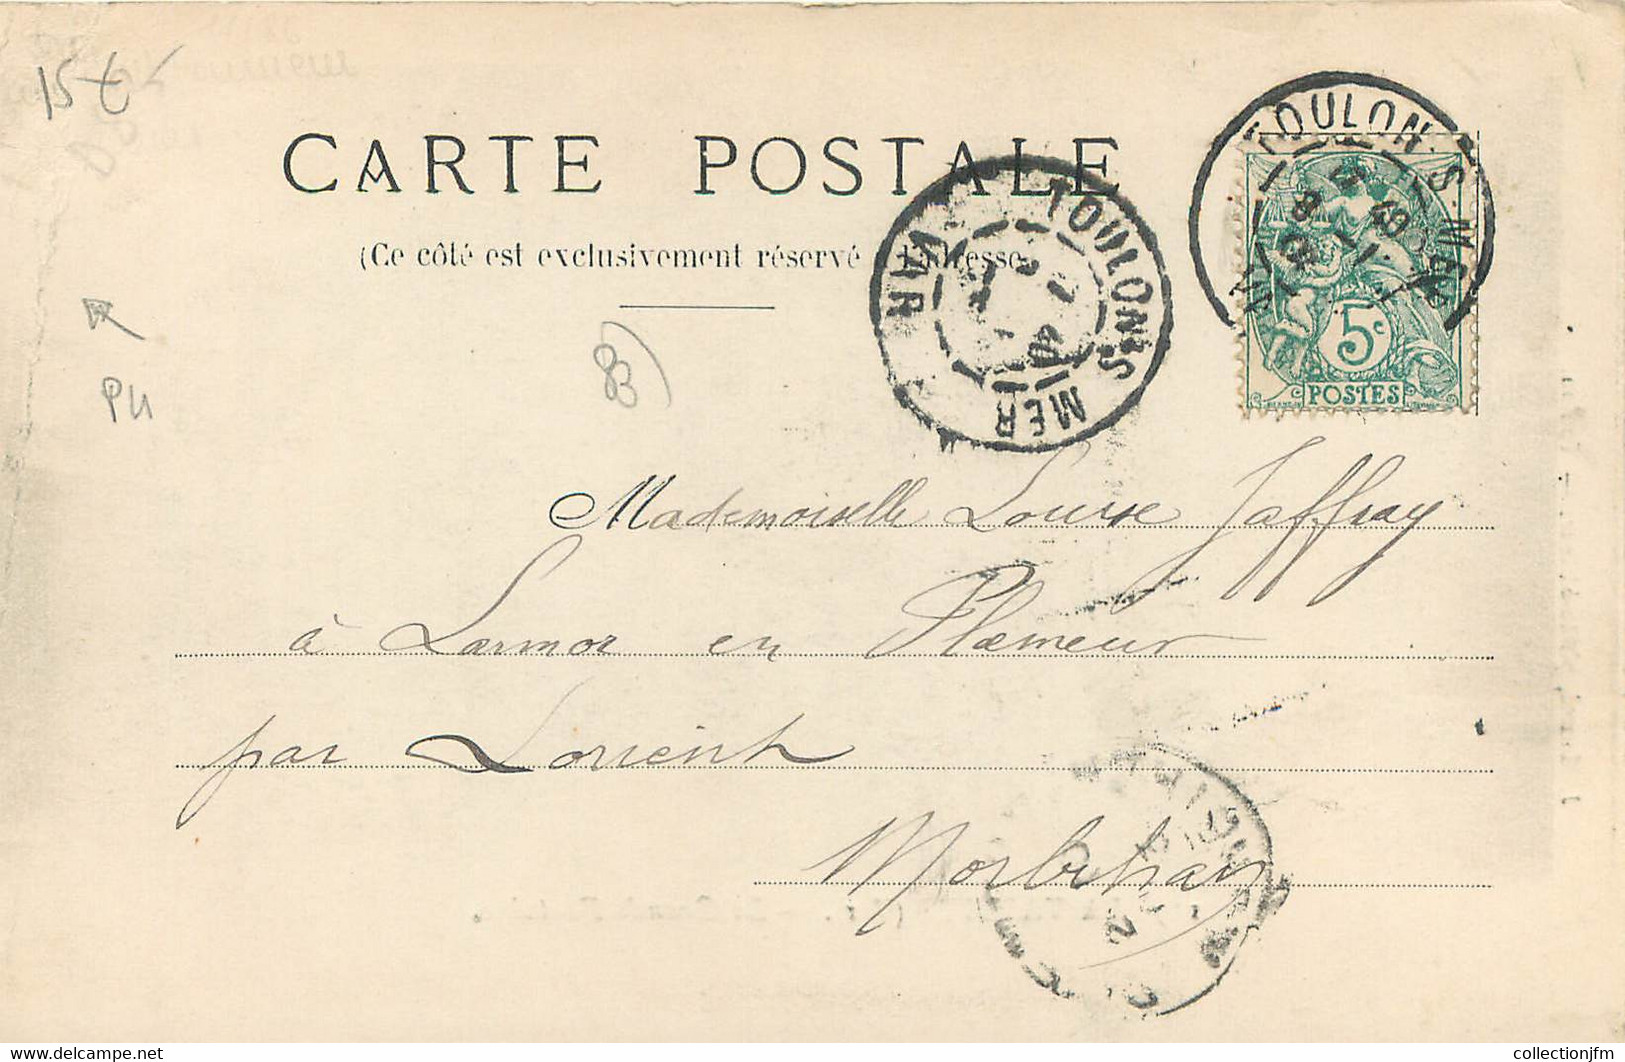 15 €
CARTE POSTALE
(Ce côté est exclusivement réservé à l'adresse
TOULON S MER
VAR
TOULON-S-MER
VAR
5c
POSTES
PU
83)
Mademoiselle Louise Jaffray
à Larmor en Plœmeur
par Lorient
Morbihan
collectionjfm